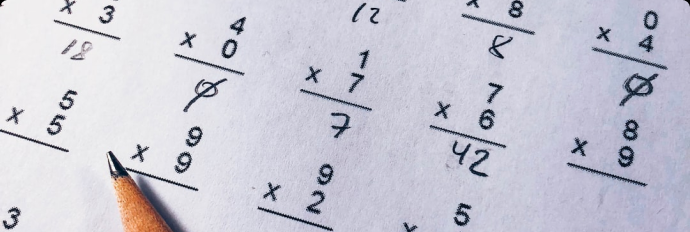 x 3
18
4
x 0
0
12
1
x 7
7
x 8
8
7
x 6
42
0
x 4
0
5
x 5
9
x 9
9
x 2
8
x 9
3
5
x